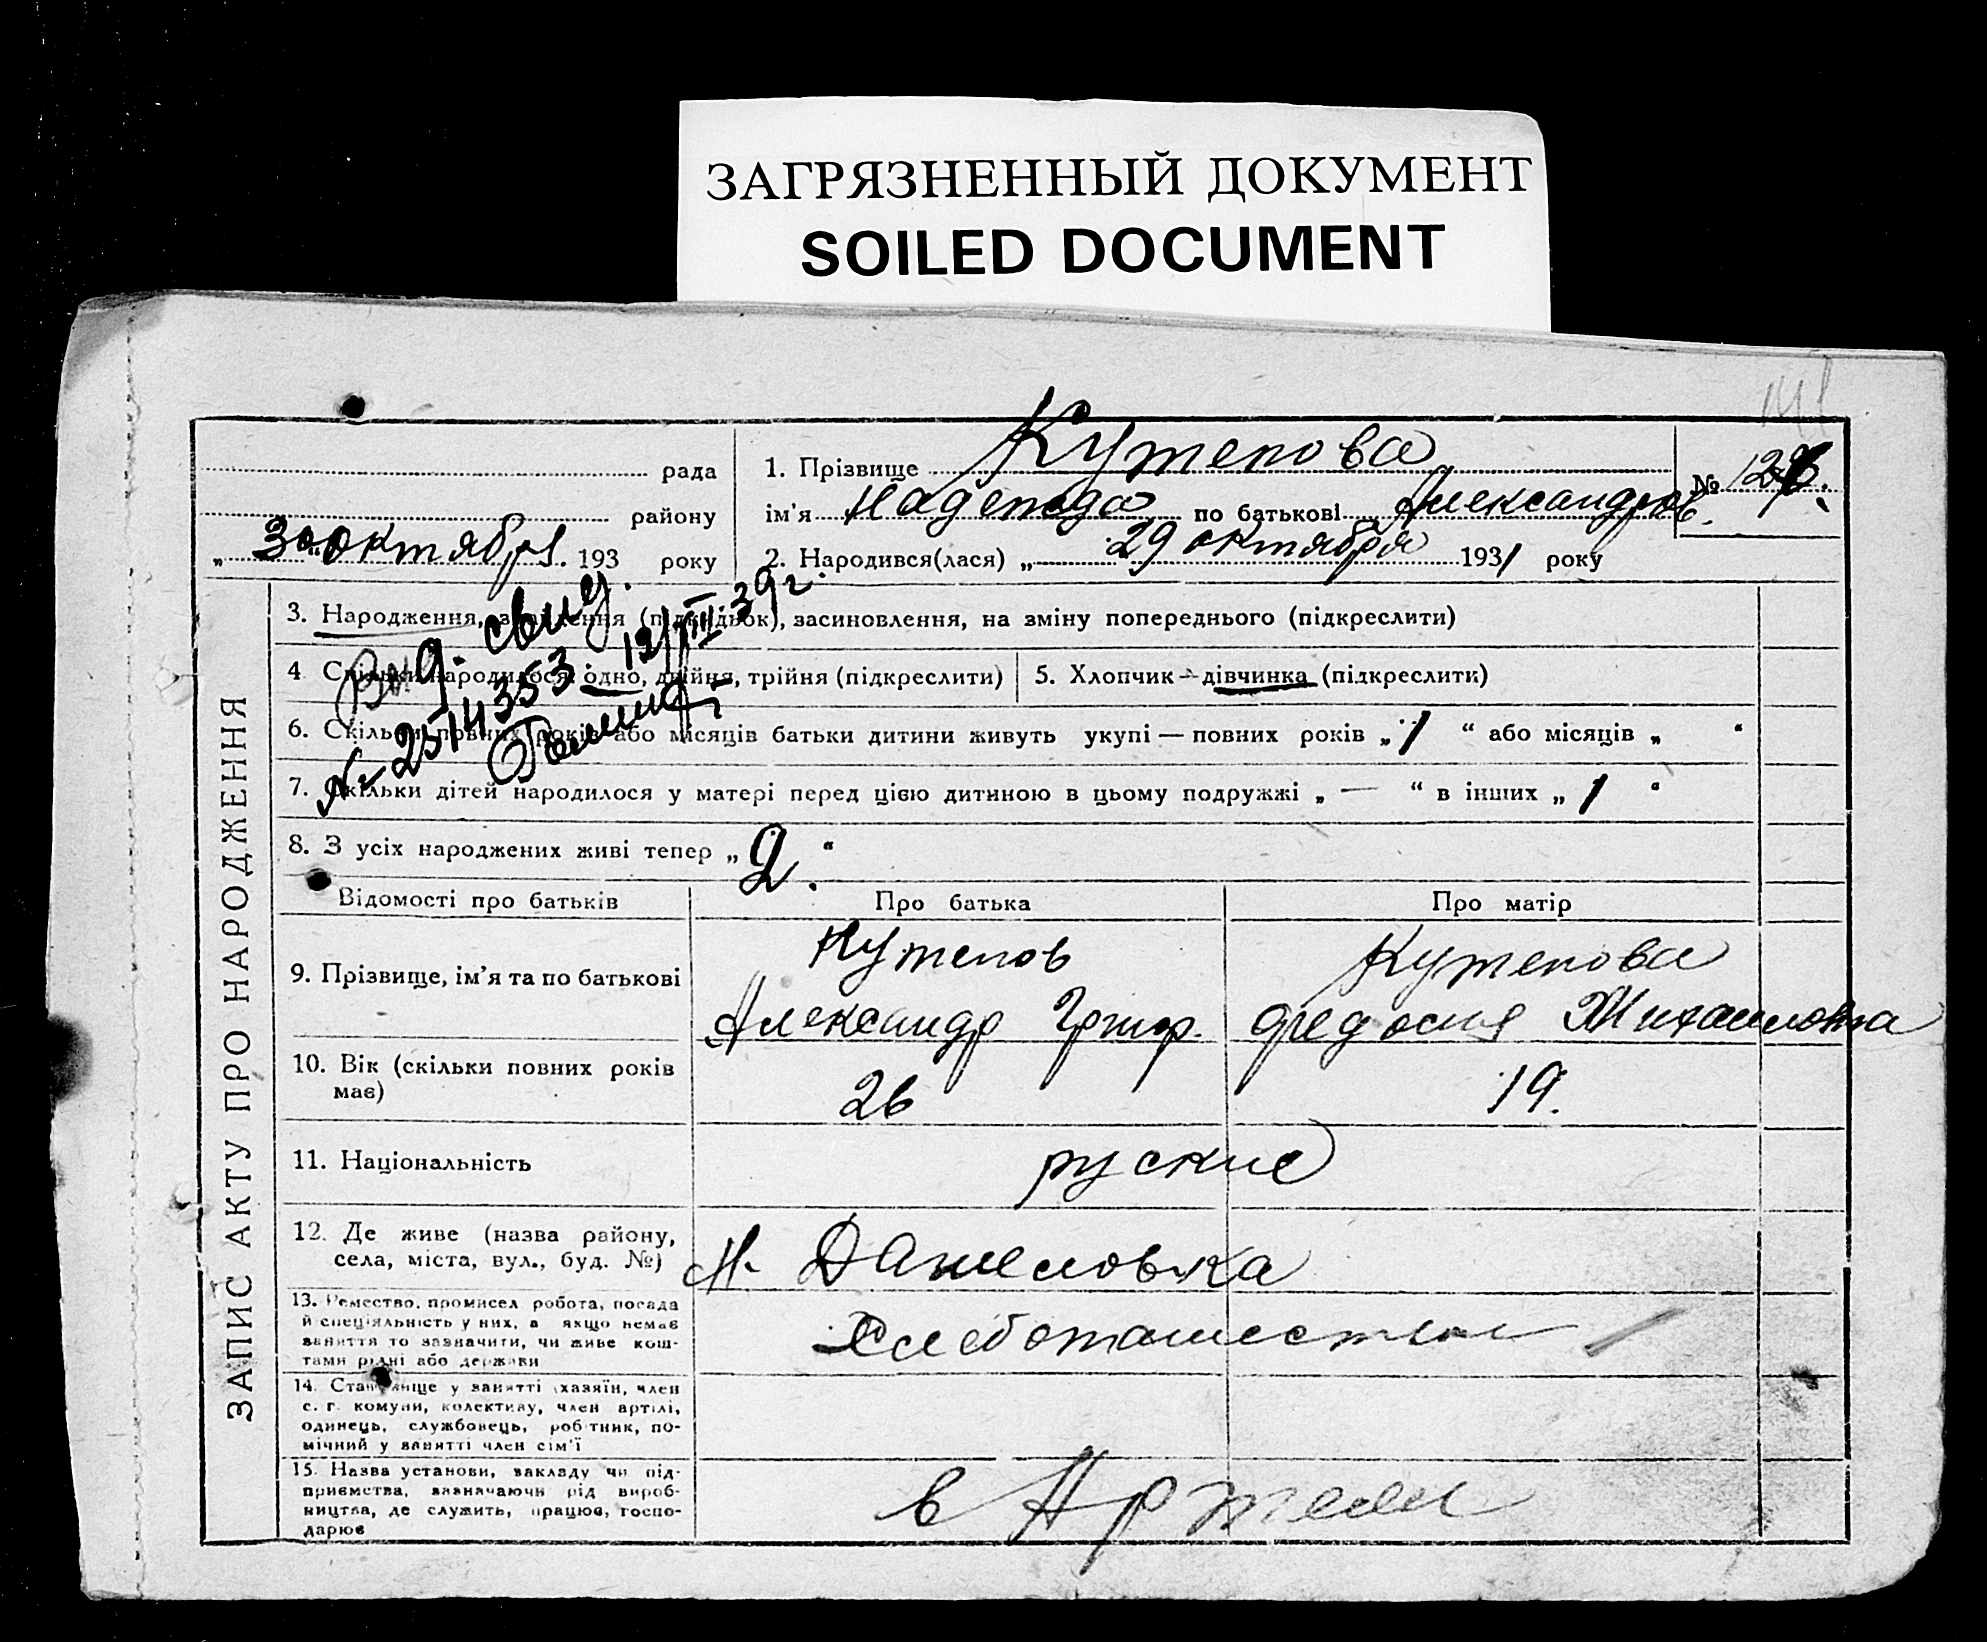 ЗАГРЯЗНЕННЫЙ ДОКУМЕНТ
SOILED DOCUMENT
рада
району
„30“ октября 193 року
1. Прізвище Кутепова
ім'я Надежда по батькові Александров.
2. Народився(лася) „29 октября 1931 року
№
ЗАПИС АКТУ ПРО НАРОДЖЕННЯ
3. Народження, знайдення (підкидьок), засиновлення, на зміну попереднього (підкреслити)
Выд. свид.
№ 2514353 12/VIII-39г.
4. Скільки народилося: одно, двійня, трійня (підкреслити)
5. Хлопчик — дівчинка (підкреслити)
6. Скільки повних років або місяців батьки дитини живуть укупі — повних років „1“ або місяців „ “
7. Скільки дітей народилося у матері перед цією дитиною в цьому подружжі „—“ в інших „1“
8. З усіх народжених живі тепер „2.“
Відомості про батьків Про батька Про матір
9. Прізвище, ім'я та по батькові
Кутепов
Александр Григор.
Кутепова
Федосия Михаиловна
10. Вік (скільки повних років
має)
26
19.
11. Національність
руские
12. Де живе (назва району,
села, міста, вул., буд. №)
Н. Данеловка
13. Ремество, промисел робота, посада
й спеціяльність у них, а якщо немає
заняття то зазначити, чи живе кош-
тами рідні або держави
14. Становище у занятті (хазяїн, член
с. г. комуни, колективу, член артілі,
одинець, службовець, робітник, по-
мічний у занятті член сім'ї
15. Назва установи, закладу чи під-
приємства, зазначаючи рід вироб-
ництва, де служить, працює, госпо-
дарює
в Артели